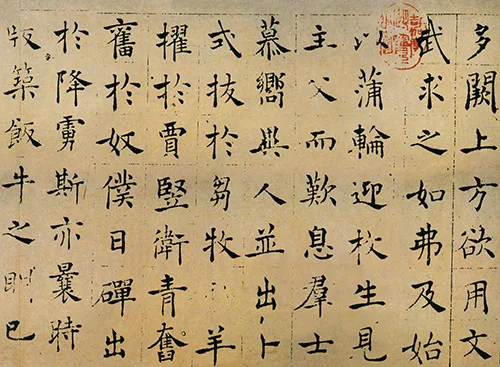 多闕上方欲用文
武求之如弗及始
以蒲輪迎枚生見
主父而歎息羣士
慕嚮異人並出卜
式拔於芻牧羊
擢於賈豎衛青奮
奮於奴僕日磾出
於降虜斯亦曩時
版築飯牛之朋已